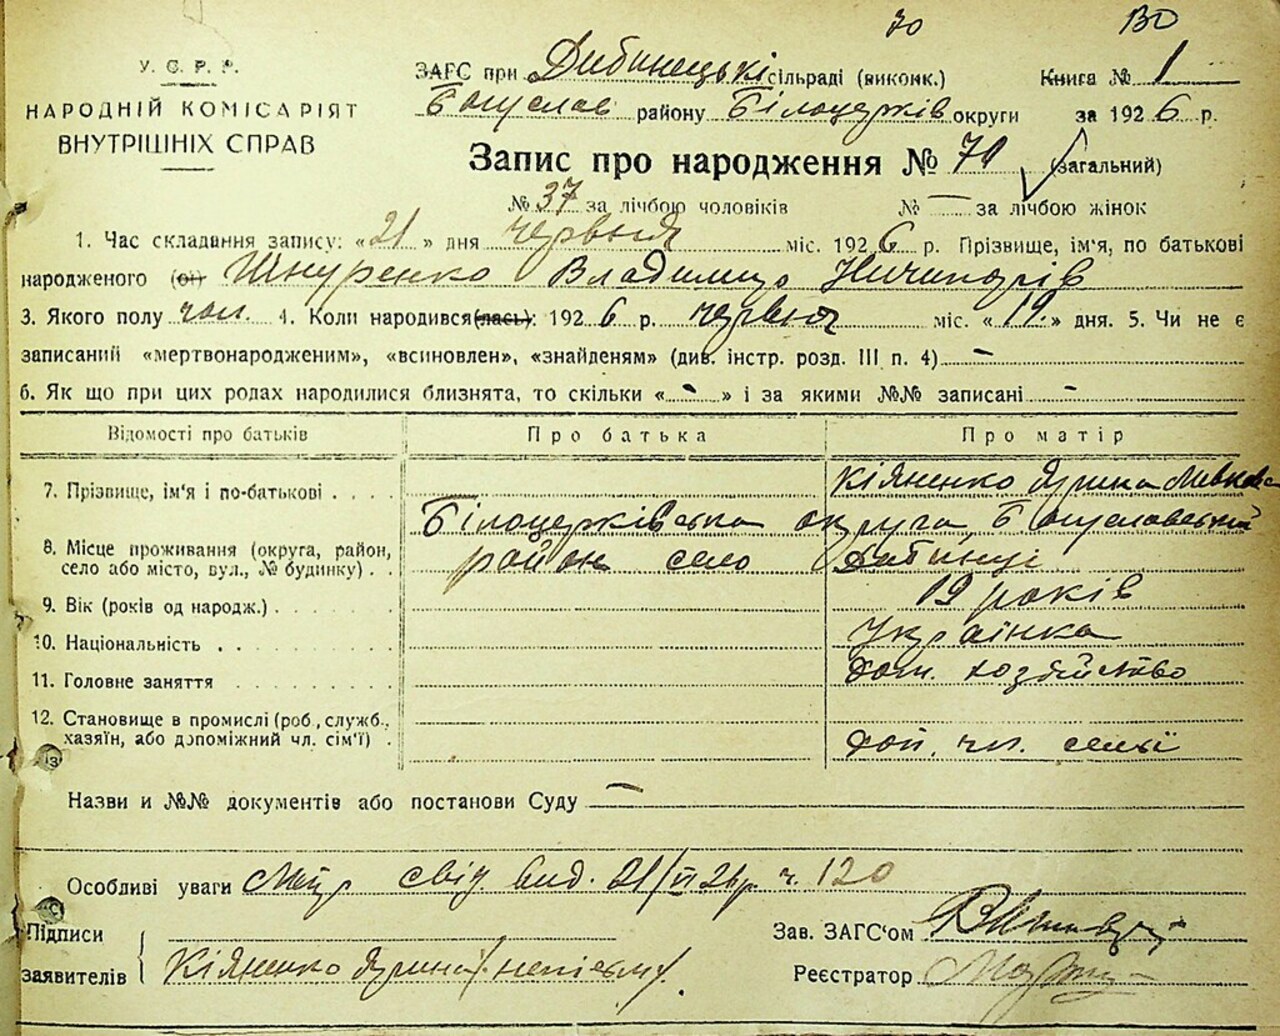 70 ВО
У. С. Р. Р.
НАРОДНІЙ КОМІСАРІЯТ
ВНУТРІШНІХ СПРАВ
ЗАГС при Дибинецькі сільраді (виконк.) Книга № 1
Богуслав району Білоцерків округи за 1926 р.
Запис про народження № 70 (загальний)
№ 37 за лічбою чоловіків № — за лічбою жінок
1. Час складання запису: «21» дня червня міс. 1926 р. Прізвище, ім'я, по батькові
народженого (ої) Шнуренко Владимир Ничипорів
3. Якого полу чол. 4. Коли народився (лась): 1926 р. червня міс. «19.» дня. 5. Чи не є
записаний «мертвонародженим», «всиновлен», «знайденям» (див. інстр. розд. III п. 4) —
6. Як що при цих родах народилися близнята, то скільки «-» і за якими №№ записані -
Відомості про батьків Про батька Про матір
7. Прізвище, ім'я і по-батькові Кіяненко Ярина
Білоцерківська округа, Богуславський
8. Місце проживання (округа, район, район село Дибинці
село або місто, вул., № будинку)
9. Вік (років од народж.) 19 років
10. Національність Українка
11. Головне заняття дом. хозяйство
12. Становище в промислі (роб., служб.,
хазяїн, або допоміжний чл. сім'ї) доп. чл. семьї
Назви и №№ документів або постанови Суду —
Особливі уваги свід. вид. 21/VI 26р. ч. 120
Підписи Зав. ЗАГС'ом
заявителів Кіяненко Ярина /неписьм/. Реєстратор